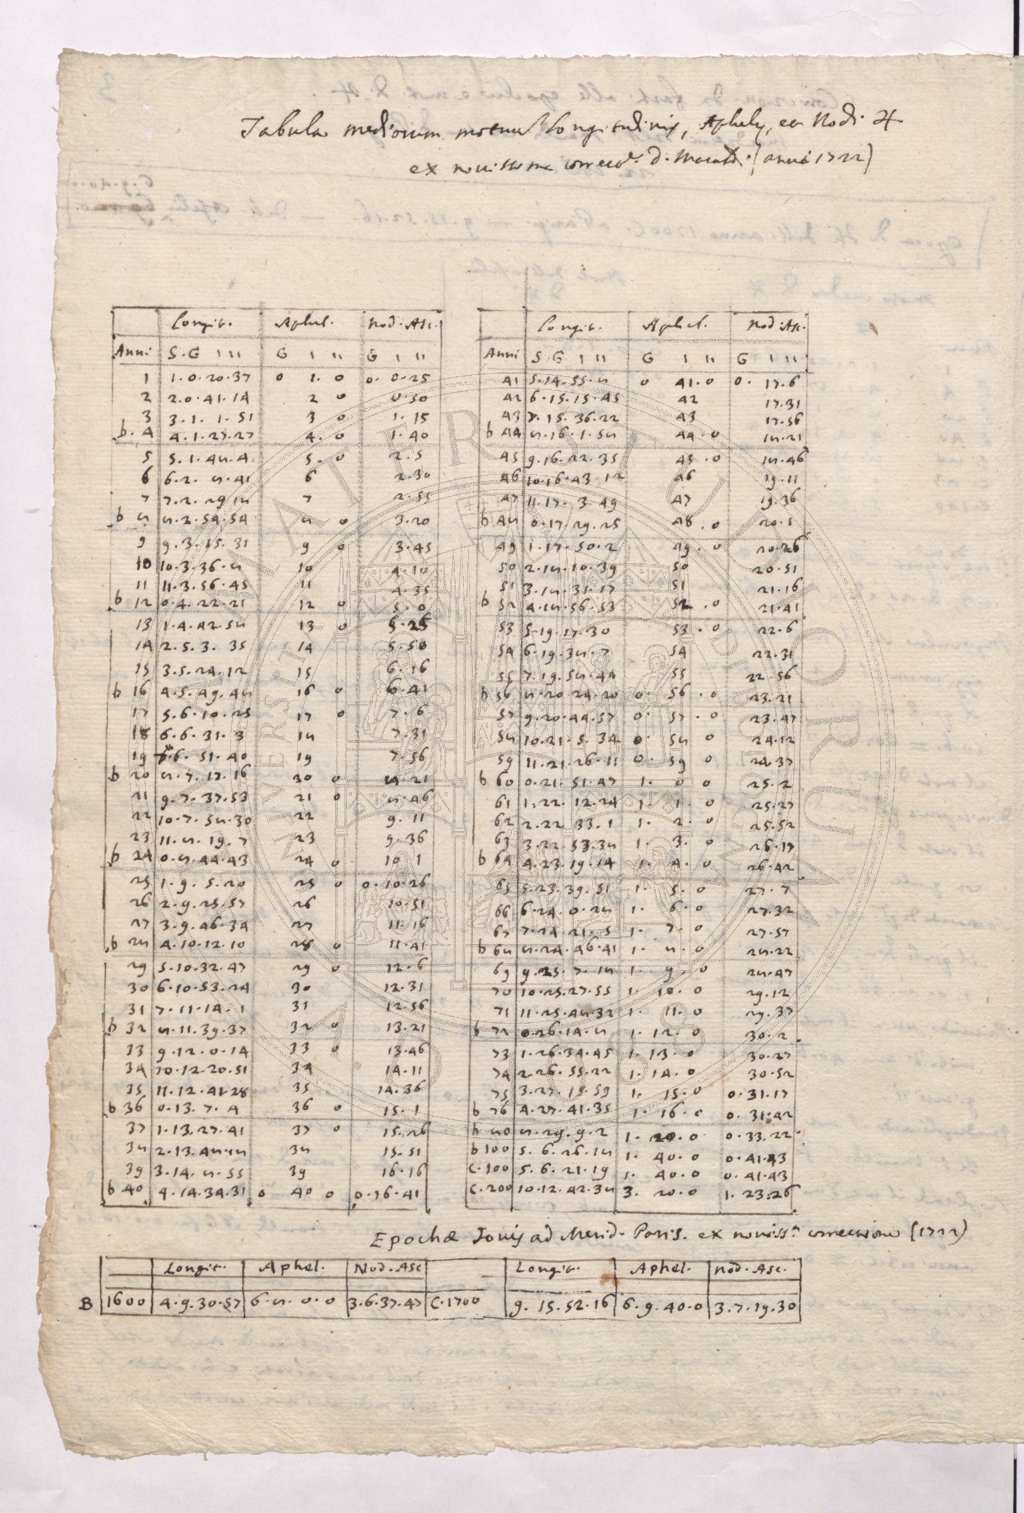 Tabula mediorum motuum longitudinis, Aphelij, et Nodi ♃
ex novissima correct.e D. Maraldi (anni 1722)
Longit. Aphel. Nod. Asc.
Anni S. G I II G I II G I II
1 1.0.20.37 0 1.0 0.0.25
2 2.0.41.14 2 0 0.50
3 3.1.1.51 3 0 1.15
b. 4 4.1.27.27 4.0 1.40
5 5.1.48.4 5.0 2.5
6 6.2.8.41 6 2.30
7 7.2.29.18 7 2.55
b 8 8.2.54.54 8 0 3.20
9 9.3.15.31 9 0 3.45
10 10.3.36.8 10 4.10
11 11.3.56.45 11 4.35
b 12 0.4.22.21 12 0 5.0
13 1.4.42.58 13 0 5.25
14 2.5.3.35 14 5.50
15 3.5.24.12 15 6.16
b 16 4.5.49.48 16 0 6.41
17 5.6.10.25 17 0 7.6
18 6.6.31.3 18 7.31
19 7.6.51.40 19 7.56
b 20 8.7.17.16 20 0 8.21
21 9.7.37.53 21 0 8.46
22 10.7.58.30 22 9.11
23 11.8.19.7 23 9.36
b 24 0.8.44.43 24 0 10.1
25 1.9.5.20 25 0 0.10.26
26 2.9.25.57 26 10.51
27 3.9.46.34 27 11.16
b 28 4.10.12.10 28 0 11.41
29 5.10.32.47 29 0 12.6
30 6.10.53.24 30 12.31
31 7.11.14.1 31 12.56
b 32 8.11.39.37 32 0 13.21
33 9.12.0.14 33 0 13.46
34 10.12.20.51 34 14.11
35 11.12.41.28 35 14.36
b 36 0.13.7.4 36 0 15.1
37 1.13.27.41 37 0 15.26
38 2.13.48.18 38 15.51
39 3.14.8.55 39 16.16
b 40 4.14.34.31 0 40 0 0.16.41
Longit. Aphel. Nod. Asc.
Anni S. G I II G I II G I II
41 5.14.55.8 0 41.0 0.17.6
42 6.15.15.45 42 17.31
43 7.15.36.22 43 17.56
b 44 8.16.1.58 44.0 18.21
45 9.16.22.35 45.0 18.46
46 10.16.43.12 46 19.11
47 11.17.3.49 47 19.36
b 48 0.17.29.25 48.0 20.1
49 1.17.50.2 49.0 20.26
50 2.18.10.39 50 20.51
51 3.18.31.17 51 21.16
b 52 4.18.56.53 52.0 21.41
53 5.19.17.30 53.0 22.6
54 6.19.38.7 54 22.31
55 7.19.58.44 55 22.56
b 56 8.20.24.20 0.56.0 23.21
57 9.20.44.57 0.57.0 23.47
58 10.21.5.34 0.58 0 24.12
59 11.21.26.11 0.59 0 24.37
b 60 0.21.51.47 1.0 0 25.2
61 1.22.12.24 1.1.0 25.27
62 2.22.33.1 1.2.0 25.52
63 3.22.53.38 1.3.0 26.17
b 64 4.23.19.14 1.4.0 26.42
65 5.23.39.51 1.5.0 27.7
66 6.24.0.28 1.6.0 27.32
67 7.24.21.5 1.7.0 27.57
b 68 8.24.46.41 1.8.0 28.22
69 9.25.7.18 1.9.0 28.47
70 10.25.27.55 1.10.0 29.12
71 11.25.48.32 1.11.0 29.37
b 72 0.26.14.8 1.12.0 30.2
73 1.26.34.45 1.13.0 30.27
74 2.26.55.22 1.14.0 30.52
75 3.27.15.59 1.15.0 0.31.17
b 76 4.27.41.35 1.16.0 0.31.42
b 80 8.29.9.2 1.20.0 0.33.22
b 100 5.6.26.18 1.40.0 0.41.43
C.100 5.6.21.19 1.40.0 0.41.43
C.200 10.12.42.38 3.20.0 1.23.26
Epochæ Jovis ad Merid. Paris. ex noviss.a correctione (1722)
Longit. Aphel. Nod. Asc Longit. Aphel. Nod. Asc.
B 1600 4.9.30.57 6.8.0.0 3.6.37.47 C.1700 9.15.52.16 6.9.40.0 3.7.19.30